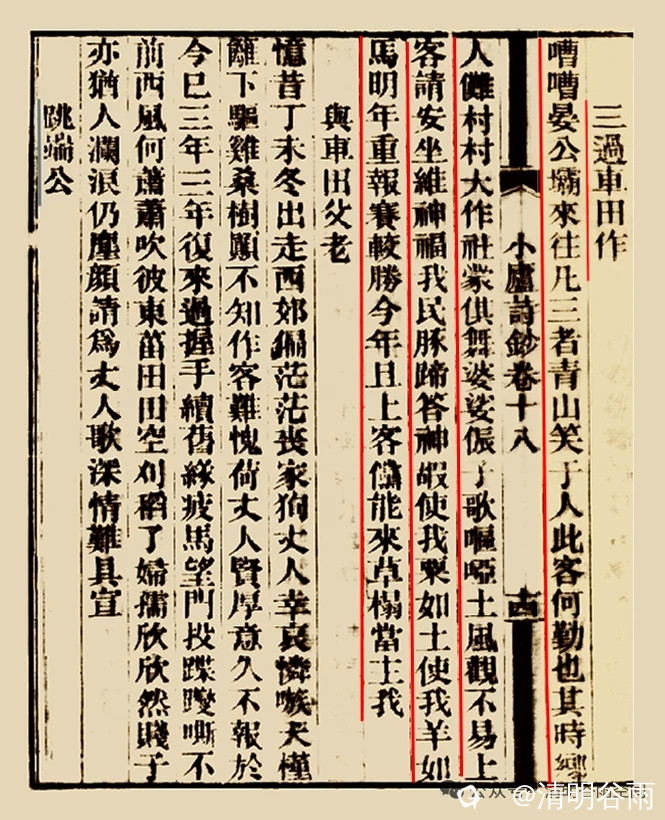 三過車田作
嘈嘈晏公壩來往凡三者青山笑于人此客何勤也其時鄉
小廬詩鈔卷十八
人儺村村大作社蒙倛舞婆娑侲子歌嘔啞土風觀不易上
客請安坐維神福我民豚蹄答神嘏使我粟如土使我羊如
馬明年重報賽較勝今年且上客儻能來草榻當主我
與車田父老
憶昔丁未冬出走西郊偏茫茫喪家狗丈人幸哀憐嗾犬槿
籬下驅雞桑樹顛不知作客難愧荷丈人賢厚意久不報於
今已三年三年復來過握手續舊緣疲馬望門投蹀躞嘶不
前西風何蕭蕭吹彼東菑田田空刈稻了婦孺欣欣然賤子
亦猶人瀾浪仍塵顏請為丈人歌深情難具宣
跳端公
公众号
@清明谷雨